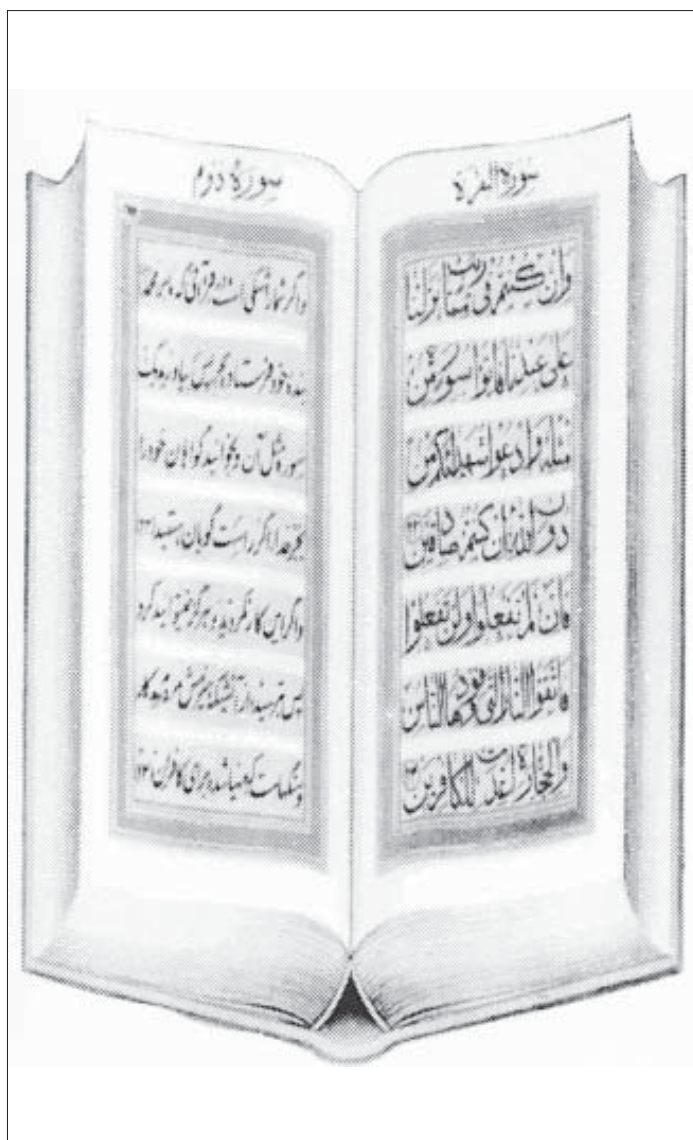 سورة البقرة
وان كنتم فى ريب مما نزلنا
على عبدنا فاتوا سورة من
مثله وادعوا شهدائكم من
دون الله ان كنتم صادقين ٢٣
فان لم تفعلوا ولن تفعلوا
فاتقوا النار التى وقودها الناس
والحجارة اعدت للكافرين
سورهٔ دوم
واگر شما را شکی است در قرآنی که ما بر محمد
بنده خود فرستاده‌ایم پس بیاورید یک
سوره مثل آن و بخوانید گواهان خود را
بجز خدا اگر راست گویان هستید ٢٣
واگر این کار نکردید و هرگز نمیتوانید کرد
پس بترسید از آتشیکه هیزمش مردم کافر
و سنگهاست که مهیا شده برای کافران